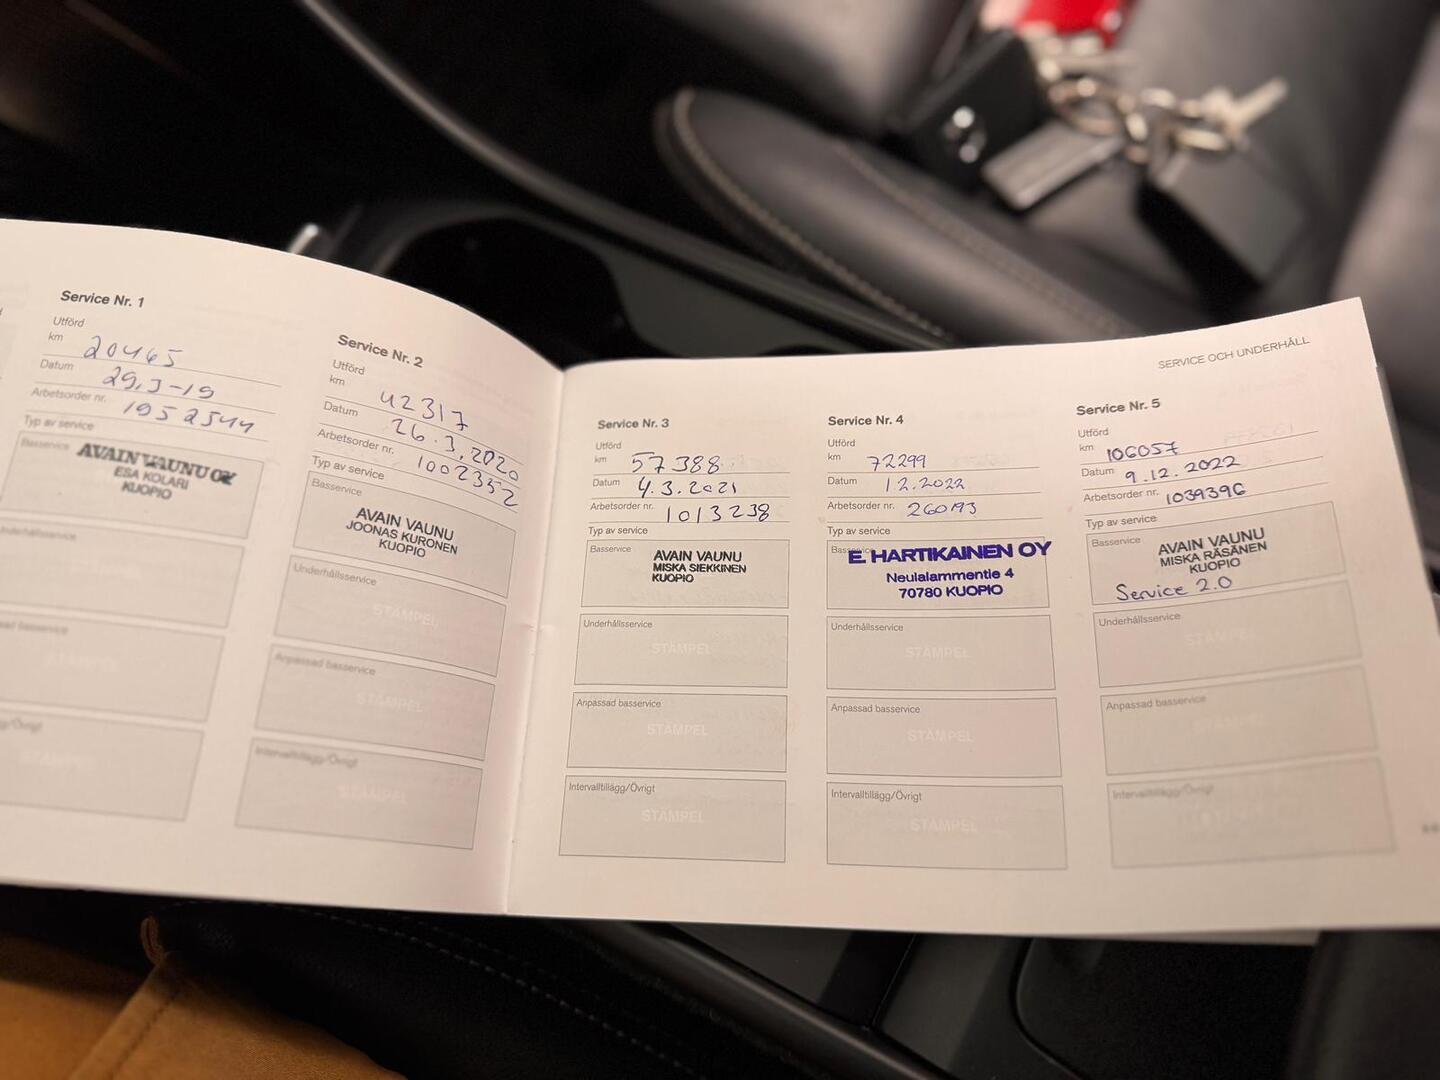 SERVICE OCH UNDERHÅLL
Service Nr. 1
Utförd
km 20465
Datum 29.3-19
Arbetsorder nr. 1952544
Typ av service
Basservice
AVAIN VAUNU OY
ESA KOLARI
KUOPIO
Service Nr. 2
Utförd
km 42317
Datum 26.3.2020
Arbetsorder nr. 1002352
Typ av service
Basservice
AVAIN VAUNU
JOONAS KURONEN
KUOPIO
Underhållsservice
STÄMPEL
Anpassad basservice
STÄMPEL
Intervalltillägg/Övrigt
STÄMPEL
Service Nr. 3
Utförd
km 57388
Datum 4.3.2021
Arbetsorder nr. 1013238
Typ av service
Basservice
AVAIN VAUNU
MISKA SIEKKINEN
KUOPIO
Underhållsservice
STÄMPEL
Anpassad basservice
STÄMPEL
Intervalltillägg/Övrigt
STÄMPEL
Service Nr. 4
Utförd
km 72299
Datum 12.2022
Arbetsorder nr. 260193
Typ av service
Basservice
E. HARTIKAINEN OY
Neulalammentie 4
70780 KUOPIO
Underhållsservice
STÄMPEL
Anpassad basservice
STÄMPEL
Intervalltillägg/Övrigt
STÄMPEL
Service Nr. 5
Utförd
km 106057
Datum 9.12.2022
Arbetsorder nr. 1039396
Typ av service
Basservice
AVAIN VAUNU
MISKA RÄSÄNEN
KUOPIO
Service 2.0
Underhållsservice
STÄMPEL
Anpassad basservice
STÄMPEL
Intervalltillägg/Övrigt